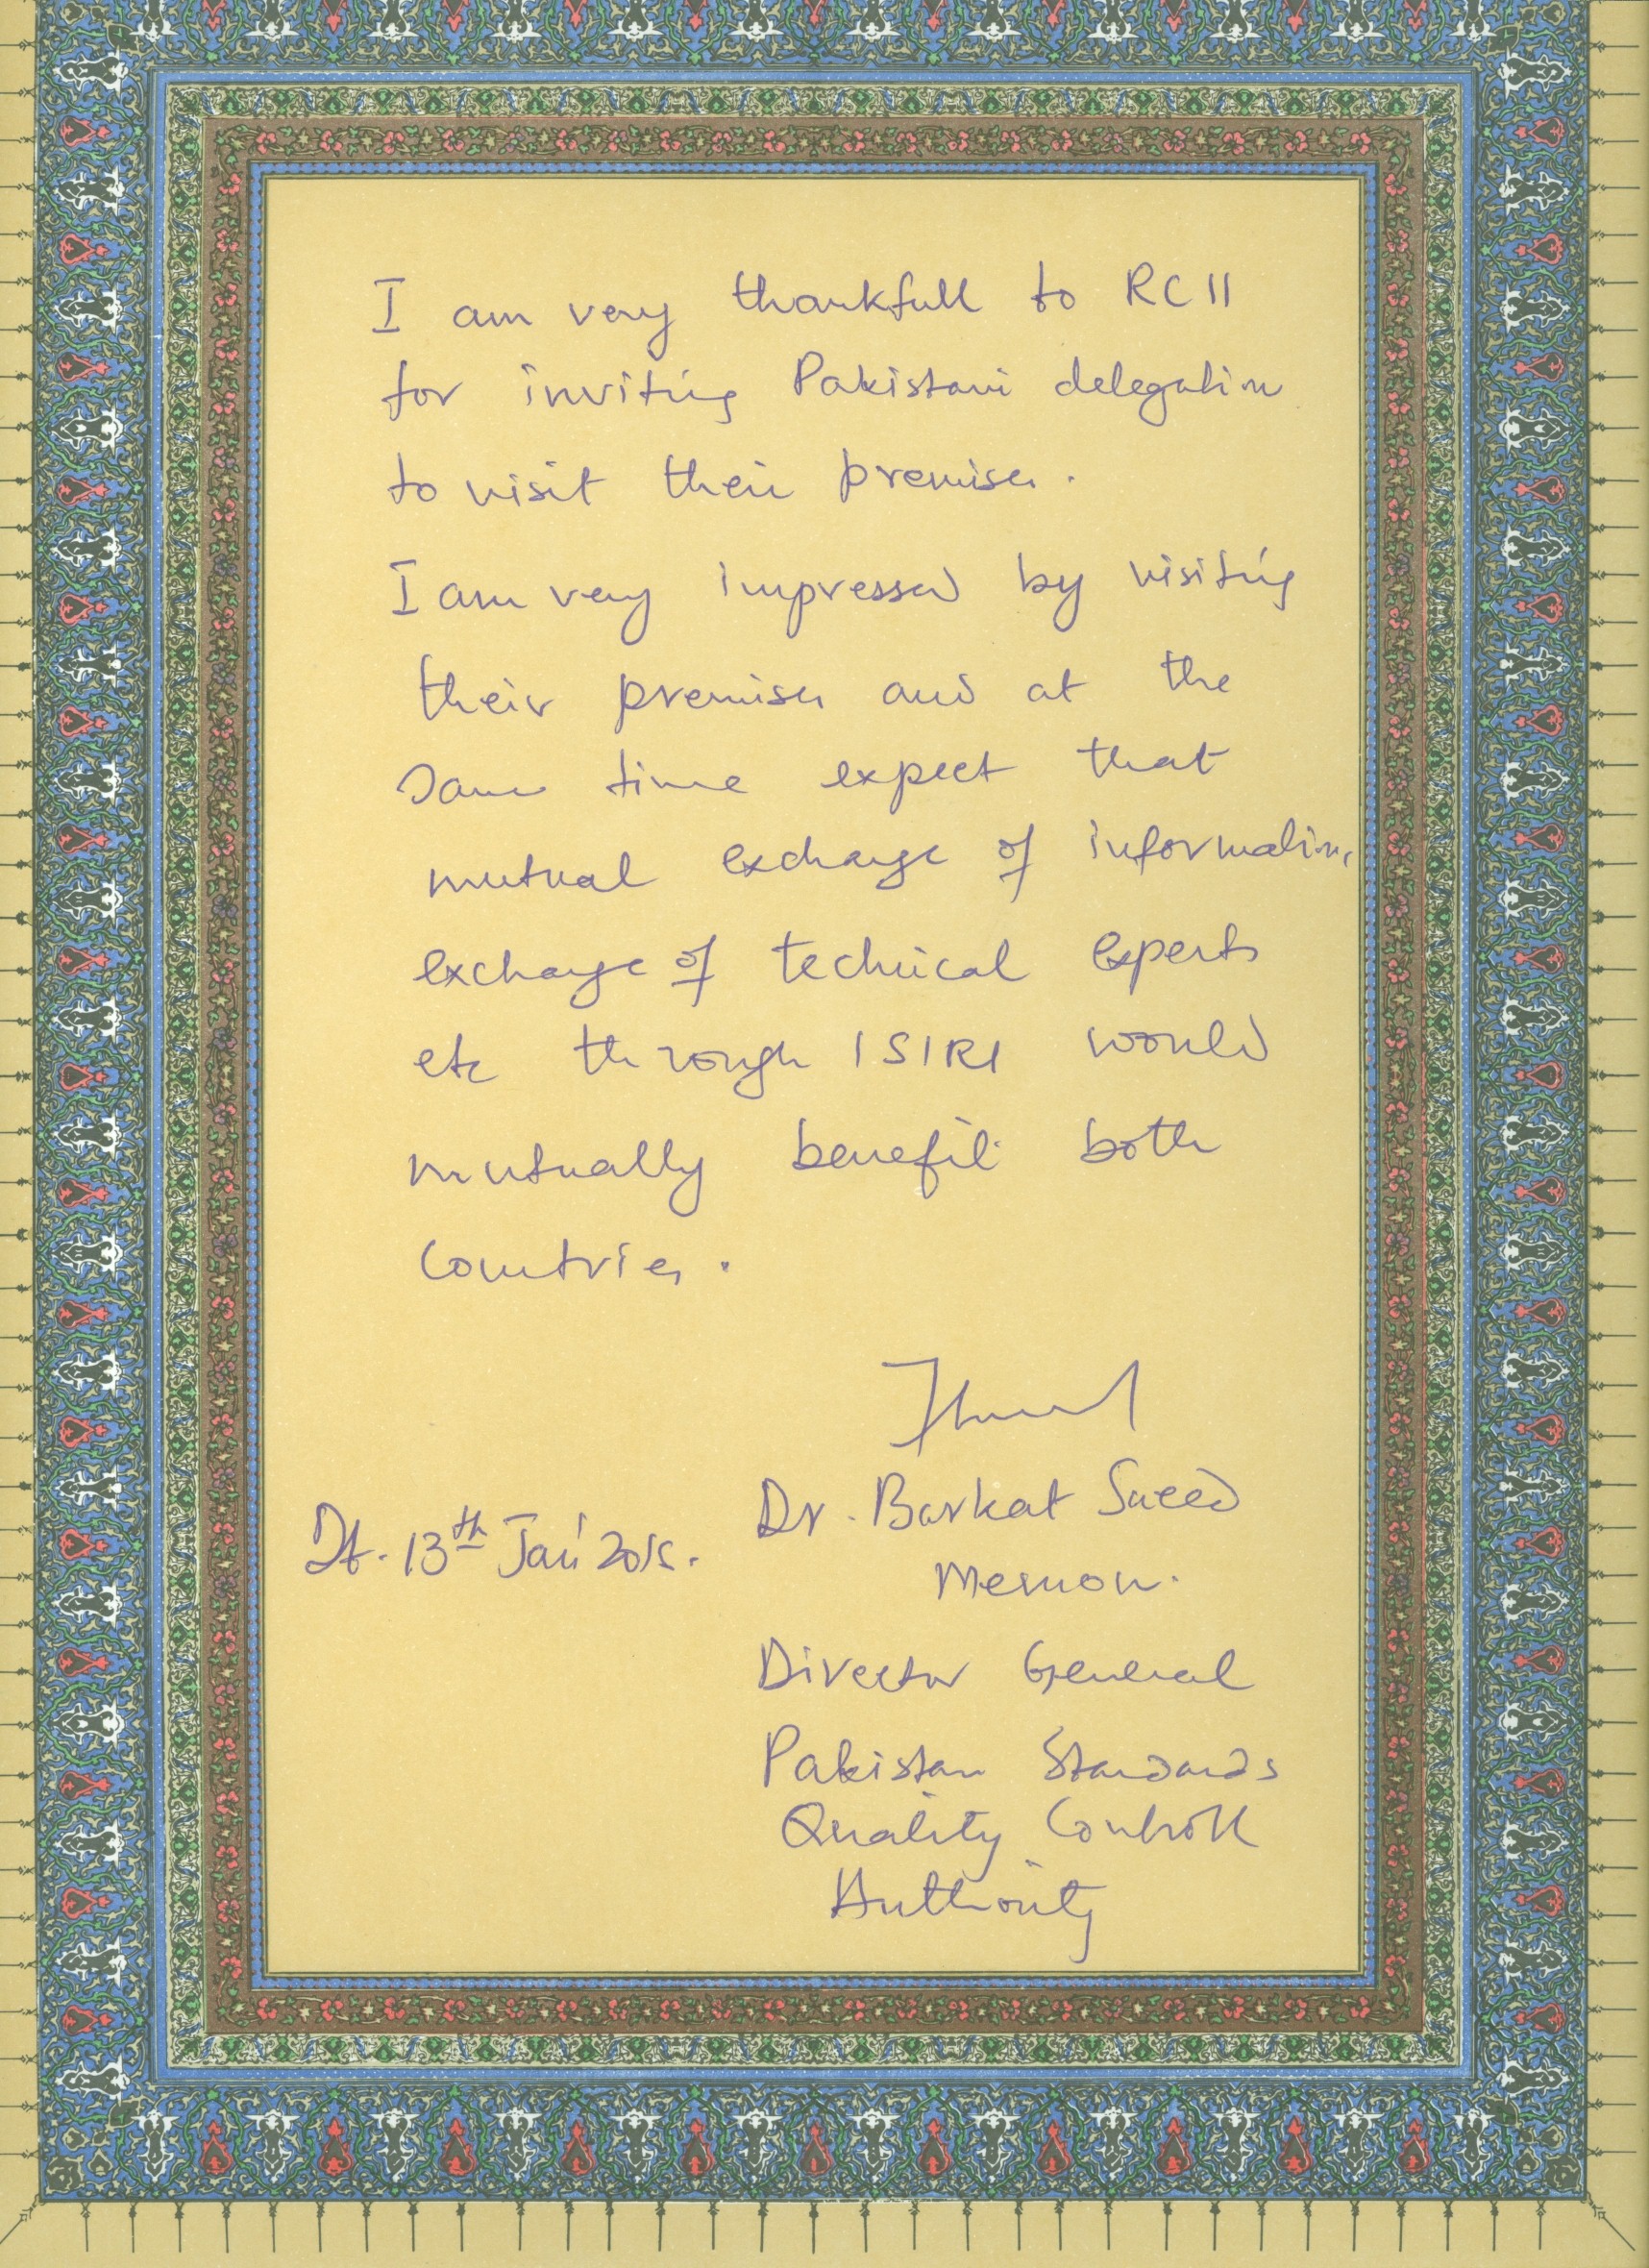 I am very thankfull to RCII
for inviting Pakistani delegation
to visit their premises.
I am very impressed by visiting
their premises and at the
same time expect that
mutual exchange of information,
exchange of technical experts
etc through ISIRI would
mutually benefit both
Countries.
Dr. Barkat Saeed
Memon.
Dt. 13th Jan'
Director General
Pakistan Standards
Quality Controll
Authority